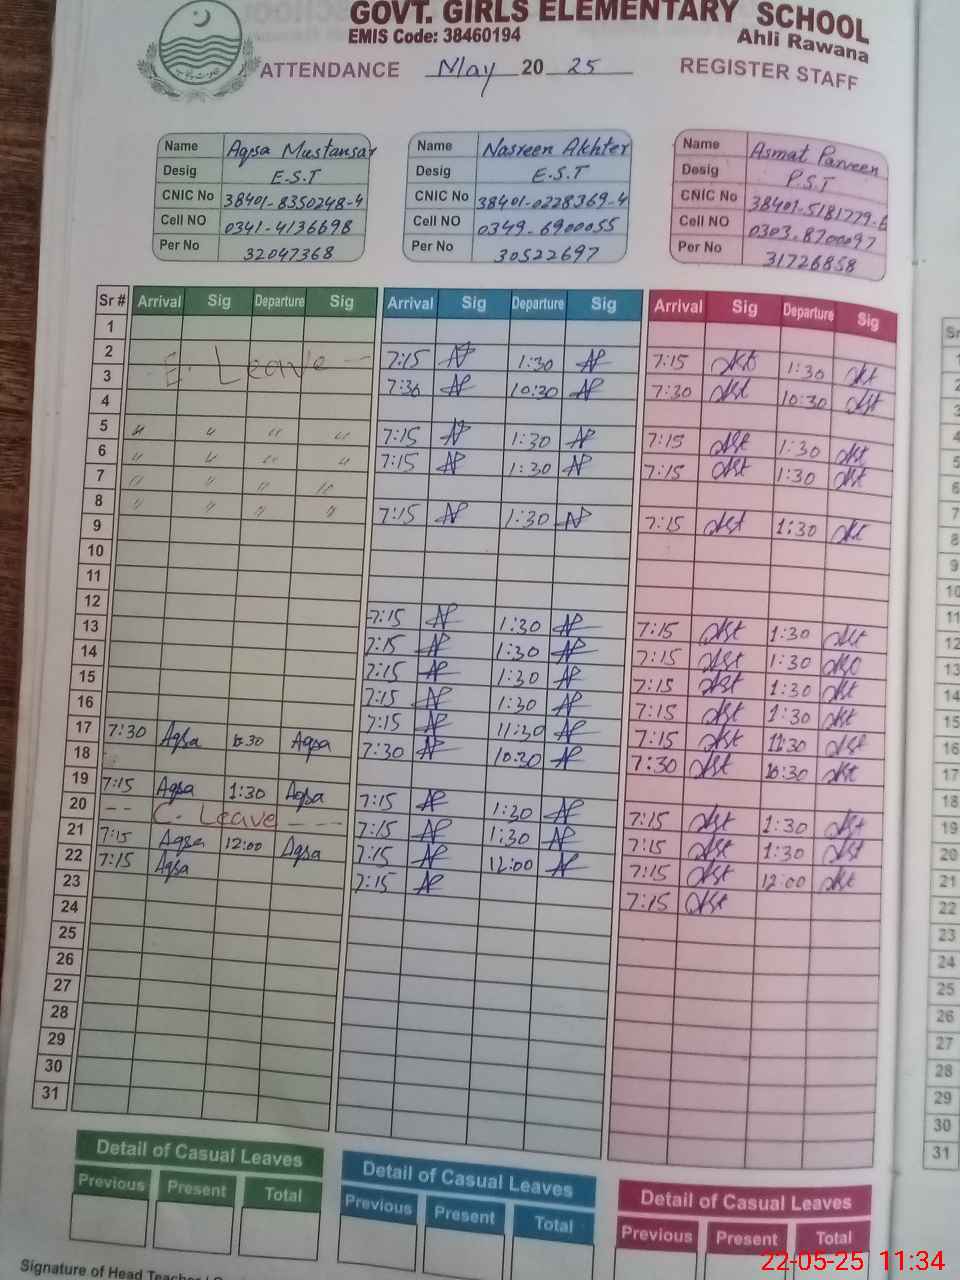 GOVT. GIRLS ELEMENTARY SCHOOL
EMIS Code: 38460194
Ahli Rawana
ATTENDANCE May 20 25 REGISTER STAFF
Name Aqsa Mustansar
Desig E.S.T
CNIC No 38401-8350248-4
Cell NO 0341-4136698
Per No 32047368
Name Nasreen Akhter
Desig E.S.T
CNIC No 38401-0228369-4
Cell NO 0349-6900055
Per No 30522697
Name Asmat Parveen
Desig P.S.T
CNIC No 38401-5181779-6
Cell NO 0303-8700097
Per No 31726858
Sr # Arrival Sig Departure Sig Arrival Sig Departure Sig Arrival Sig Departure Sig
1
2 E. Leave 7:15 1:30 7:15 1:30
3 7:30 10:30 7:30 10:30
4
5 " " " " 7:15 1:30 7:15 1:30
6 " " " " 7:15 1:30 7:15 1:30
7 " " " "
8 " " " " 7:15 1:30 7:15 1:30
9
10
11
12 7:15 1:30 7:15 1:30
13 7:15 1:30 7:15 1:30
14 7:15 1:30 7:15 1:30
15 7:15 1:30 7:15 1:30
16 7:15 11:30 7:15 11:30
17 7:30 Aqsa 10:30 Aqsa 7:30 10:30 7:30 10:30
18
19 7:15 Aqsa 1:30 Aqsa 7:15 1:30 7:15 1:30
20 -- C. Leave --- 7:15 1:30 7:15 1:30
21 7:15 Aqsa 12:00 Aqsa 7:15 12:00 7:15 12:00
22 7:15 Aqsa 7:15 7:15
23
24
25
26
27
28
29
30
31
Detail of Casual Leaves
Previous Present Total
Detail of Casual Leaves
Previous Present Total
Detail of Casual Leaves
Previous Present Total
Signature of Head Teacher
22-05-25 11:34